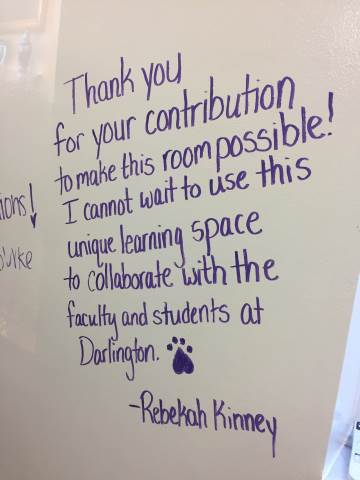 Thank you
for your contribution
to make this room possible!
I cannot wait to use this
unique learning space
to collaborate with the
faculty and students at
Darlington.
-Rebekah Kinney
ions!